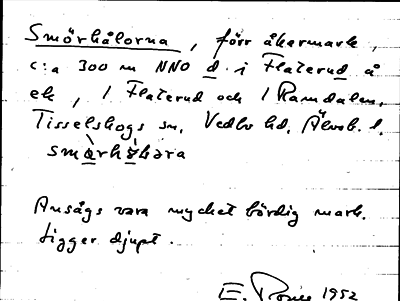 Smörhålorna, förr åkermark,
c:a 300 m NNO d. i Flaterud å
ek, 1 Flaterud och 1 Ramdalen,
Tisselskogs sn, Vedbo hd, Älvsb. l.
Ansågs vara mycket bördig mark.
Ligger djupt.
E. 1952